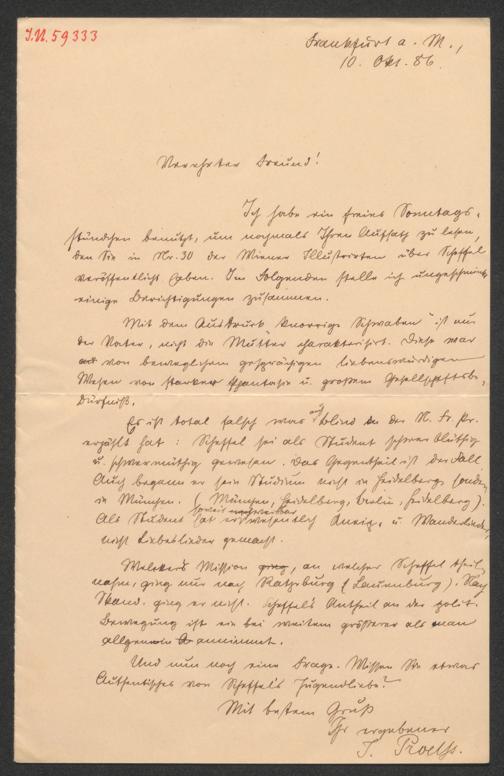 I.N. 59333
Frankfurt a. M.,
10. Okt. 86.
Verehrter Freund!
Ich habe ein freies Sonntags-
stündchen benutzt, um nochmals Ihren Aufsatz zu lesen,
den Sie in Nr. 30 der Wiener Illustrirten über Scheffel
veröffentlicht haben. Im Folgenden stelle ich ungeschminkt
einige Berichtigungen zusammen.
Mit dem Ausdruck "knorrige Schwaben" ist nur
der Vater, nicht die Mutter charakterisirt. Diese war
von beweglichem gesprächigen liebenswürdigen
Wesen von starker Phantasie u. großem Gesellschaftsbe-
dürfniß.
Es ist total falsch was auch Blind in der N. Fr. Pr.
erzählt hat: Scheffel sei als Student schwerblüthig
u. schwermüthig gewesen. Das Gegentheil ist der Fall.
Auch begann er sein Studium nicht in Heidelberg, sondern
in München. (München, Heidelberg, Berlin, Heidelberg).
Als Student hat er soweit nachweisbar wesentlich Kneip- u. Wanderlieder,
nicht Liebeslieder gemacht.
Welckers Mission ging, an welcher Scheffel theil-
nahm, ging nur nach Ratzeburg (Lauenburg). Nach
Skand. ging er nicht. Scheffels Antheil an der polit.
Bewegung ist ein bei weitem größerer als man
allgemein annimmt.
Und nun noch eine Frage. Wissen Sie etwas
Authentisches von Scheffels Jugendliebe?
Mit bestem Gruß
Ihr ergebener
J. Proelß.